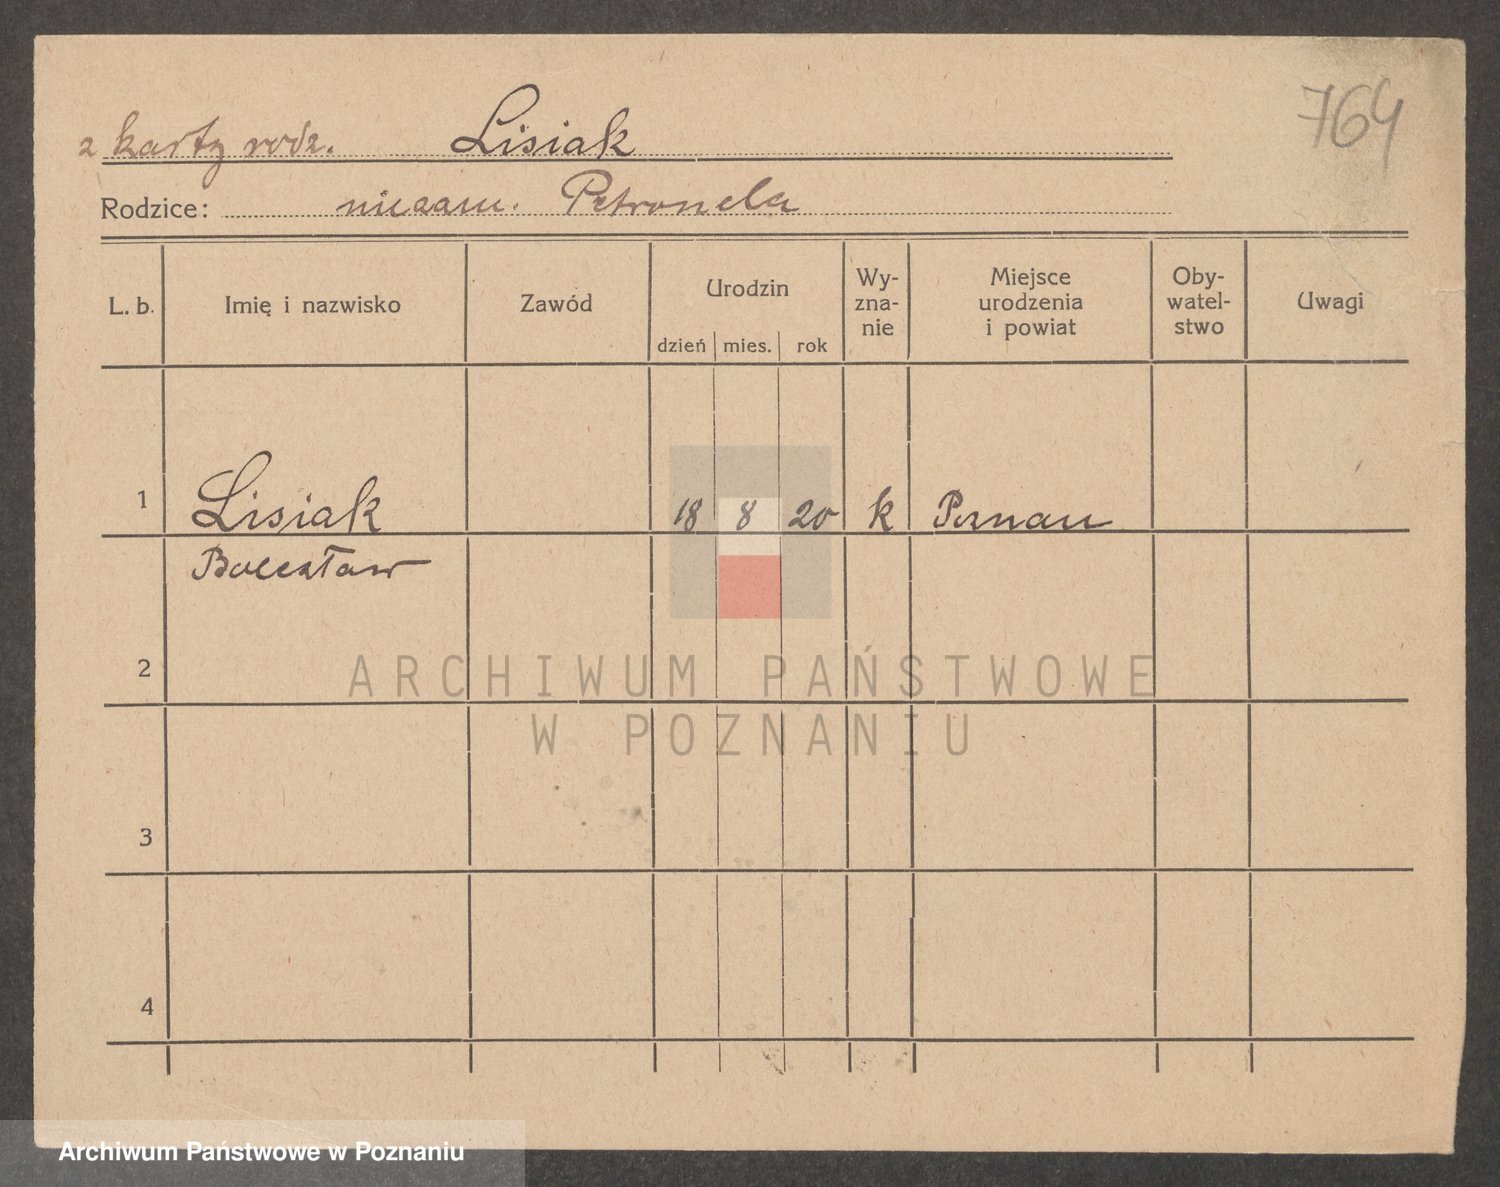 764
z karty rodz. Lisiak
Rodzice: niezam. Petronela
L. b. Imię i nazwisko Zawód Urodzin dzień mies. rok Wy-zna-nie Miejsce urodzenia i powiat Oby-watel-stwo Uwagi
1 Lisiak 18 8 20 k Poznau
Bolesław
2
ARCHIWUM PAŃSTWOWE
W POZNANIU
3
4
Archiwum Państwowe w Poznaniu